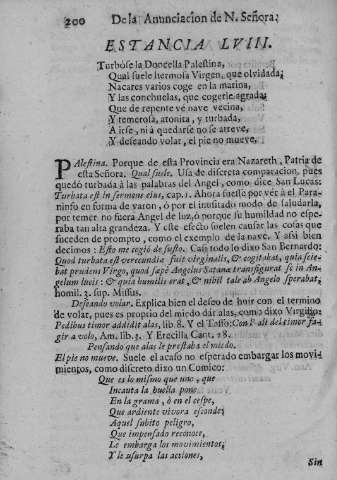 200 De la Anunciacion de N. Señora;
ESTANCIA LVIII.
Turbóse la Doncella Palestina,
Qual suele hermosa Virgen, que olvidada;
Nacares varios coge en la marina,
Y las conchuelas, que cogerle agrada;
Que de repente vé nave vecina,
Y temerosa, atonita, y turbada,
A irse, ni à quedarse no se atreve,
Y deseando volar, el pie no mueve.
Palestina. Porque de esta Provincia era Nazareth, Patria de
esta Señora. Qual suele. Usa de discreta comparacion, pues
quedó turbada à las palabras del Angel, como dice San Lucas:
Turbata est in sermone eius, cap. 1. Ahora fuesse por vér à el Para-
ninfo en forma de varon, ó por el inusitado modo de saludarla,
por temer no fuera Angel de luz, ò porque su humildad no espe-
raba tan alta grandeza. Y este efecto suelen causar las cosas que
suceden de prompto, como el exemplo de la nave. Y assi bien
decimos: Esto me cogió de susto. Casi todo lo dixo San Bernardo:
Quod turbata est verecundia fuit virginalis, & cogitabat, quia scie-
bat prudens Virgo, quod sæpè Angelus Satanæ transfigurat se in An-
gelum lucis: & quia humilis erat, & nihil tale ab Angelo sperabat,
homil. 3. sup. Missus.
Deseando volar. Explica bien el deseo de huir con el termino
de volar, pues es proprio del miedo dár alas, como dixo Virgilio:
Pedibus timor addidit alas, lib. 8. Y el Tasso: Con l'ali del timor fu-
gir a volo, Am. lib. 3. Y Ercilla Cant. 28.
Pensando que alas le prestaba el miedo.
El pie no mueve. Suele el acaso no esperado embargar los movi-
mientos, como discreto dixo un Comico:
Que es lo mismo que uno, que
Incauta la huella pone
En la grama, ò en el cespe,
Que ardiente vivora esconde;
Aquel subito peligro,
Que impensado reconoce,
Le embarga los movimientos,
Y le usurpa las acciones,
Sin